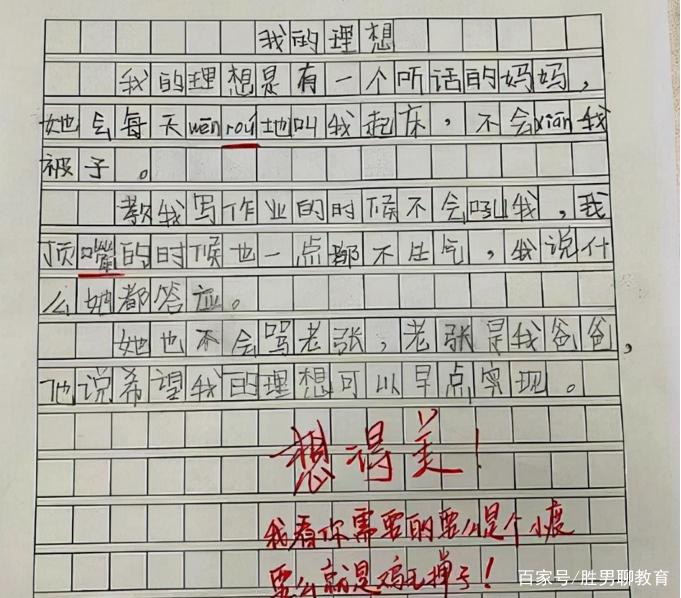 我的理想
我的理想是有一个听话的妈妈,
她会每天wēn roú地叫我起床,不会xiān我
被子。
教我写作业的时候不会吼我,我
顶嘴的时候也一点都不生气,我说什
么她都答应。
她也不会骂老张,老张是我爸爸,
他说希望我的理想可以早点实现。
想得美!
我看你需要的要么是个小鹿
要么就是鸡毛掸子!
百家号/胜男聊教育